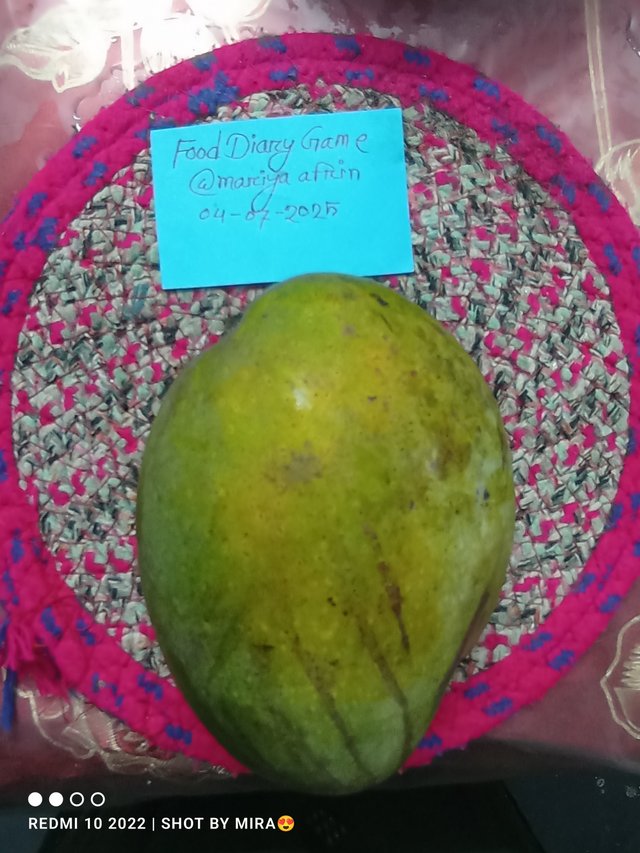 Food Diary Game
@mariya afrin
04-07-2025
REDMI 10 2022 | SHOT BY MIRA😍